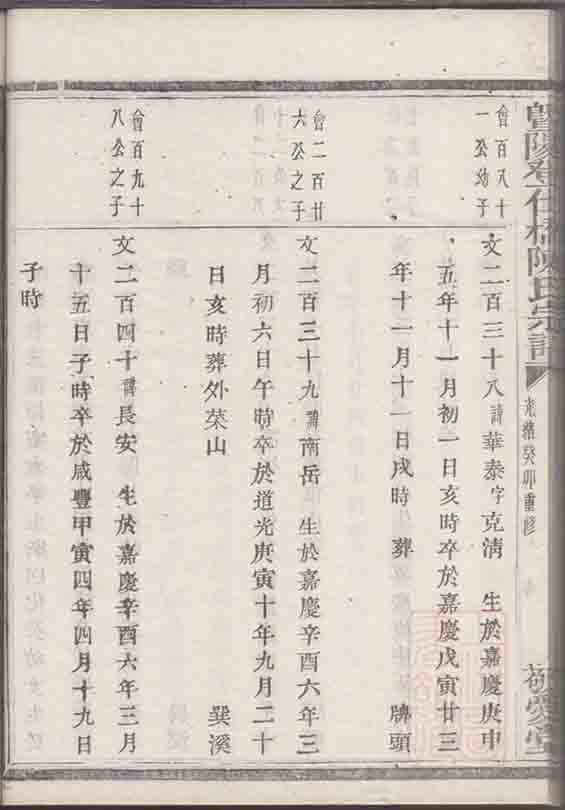 暨陽孝仁橋陳氏宗譜
光緒癸卯重修
敬愛堂
會百八十
一公幼子
文二百三十八諱華泰字克清 生於嘉慶庚申
五年十一月初一日亥時卒於嘉慶戊寅廿三
年十二月十一日戌時 葬 牌頭
會二百廿
六公之子
文二百三十九諱南岳 生於嘉慶辛酉六年三
月初六日午時卒於道光庚寅十年九月二十
日亥時葬外菜山 巽溪
會百九十
八公之子
文二百四十諱長安 生於嘉慶辛酉六年三月
十五日子時卒於咸豐甲寅四年四月十九日
子時